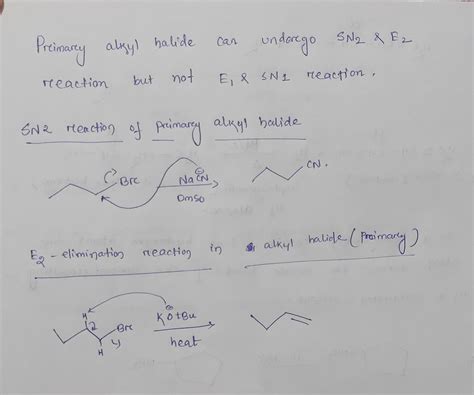 Preimarey alkyl halide can undergo SN2 & E2
reaction but not E1 & SN1 reaction.
SN2 reaction of preimarey alkyl halide
Bre
NaCN
⊖
DMSO
CN.
E2 - elimination reaction in alkyl halide (Preimarey)
H
2
Bre
H
⊖
KOtBu
heat